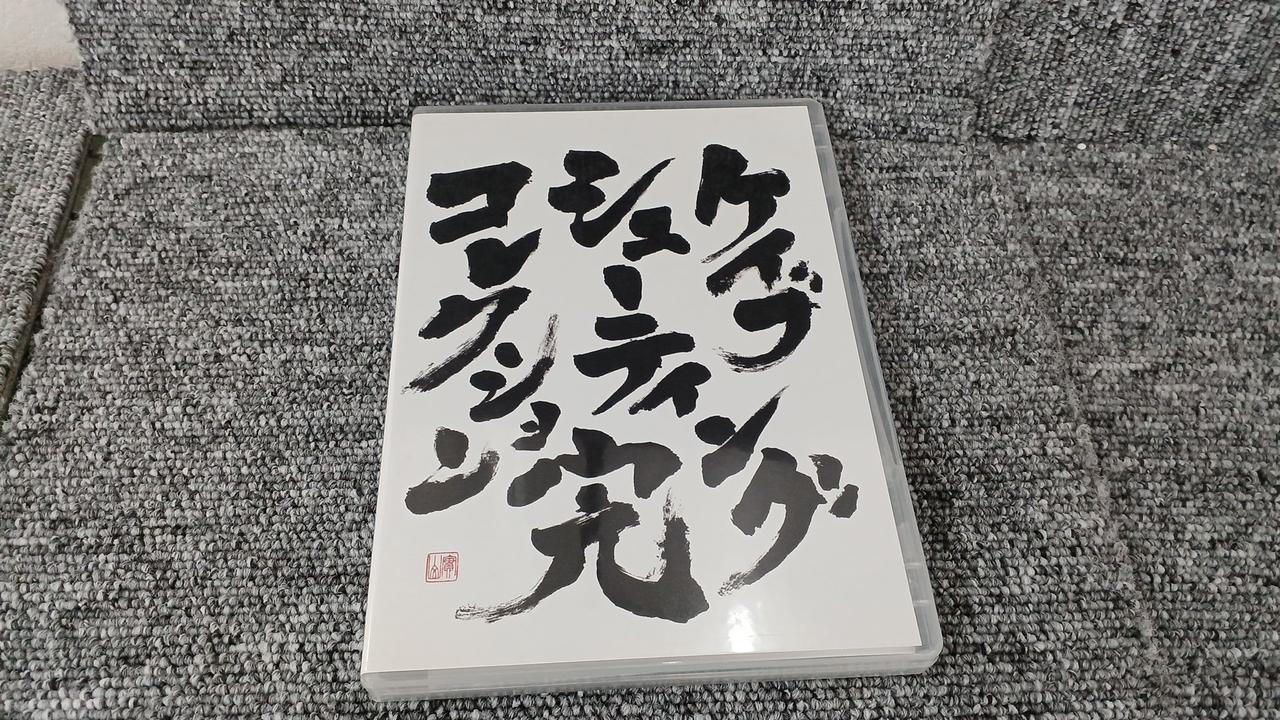 ケイブ
シューティング
コレクション
完